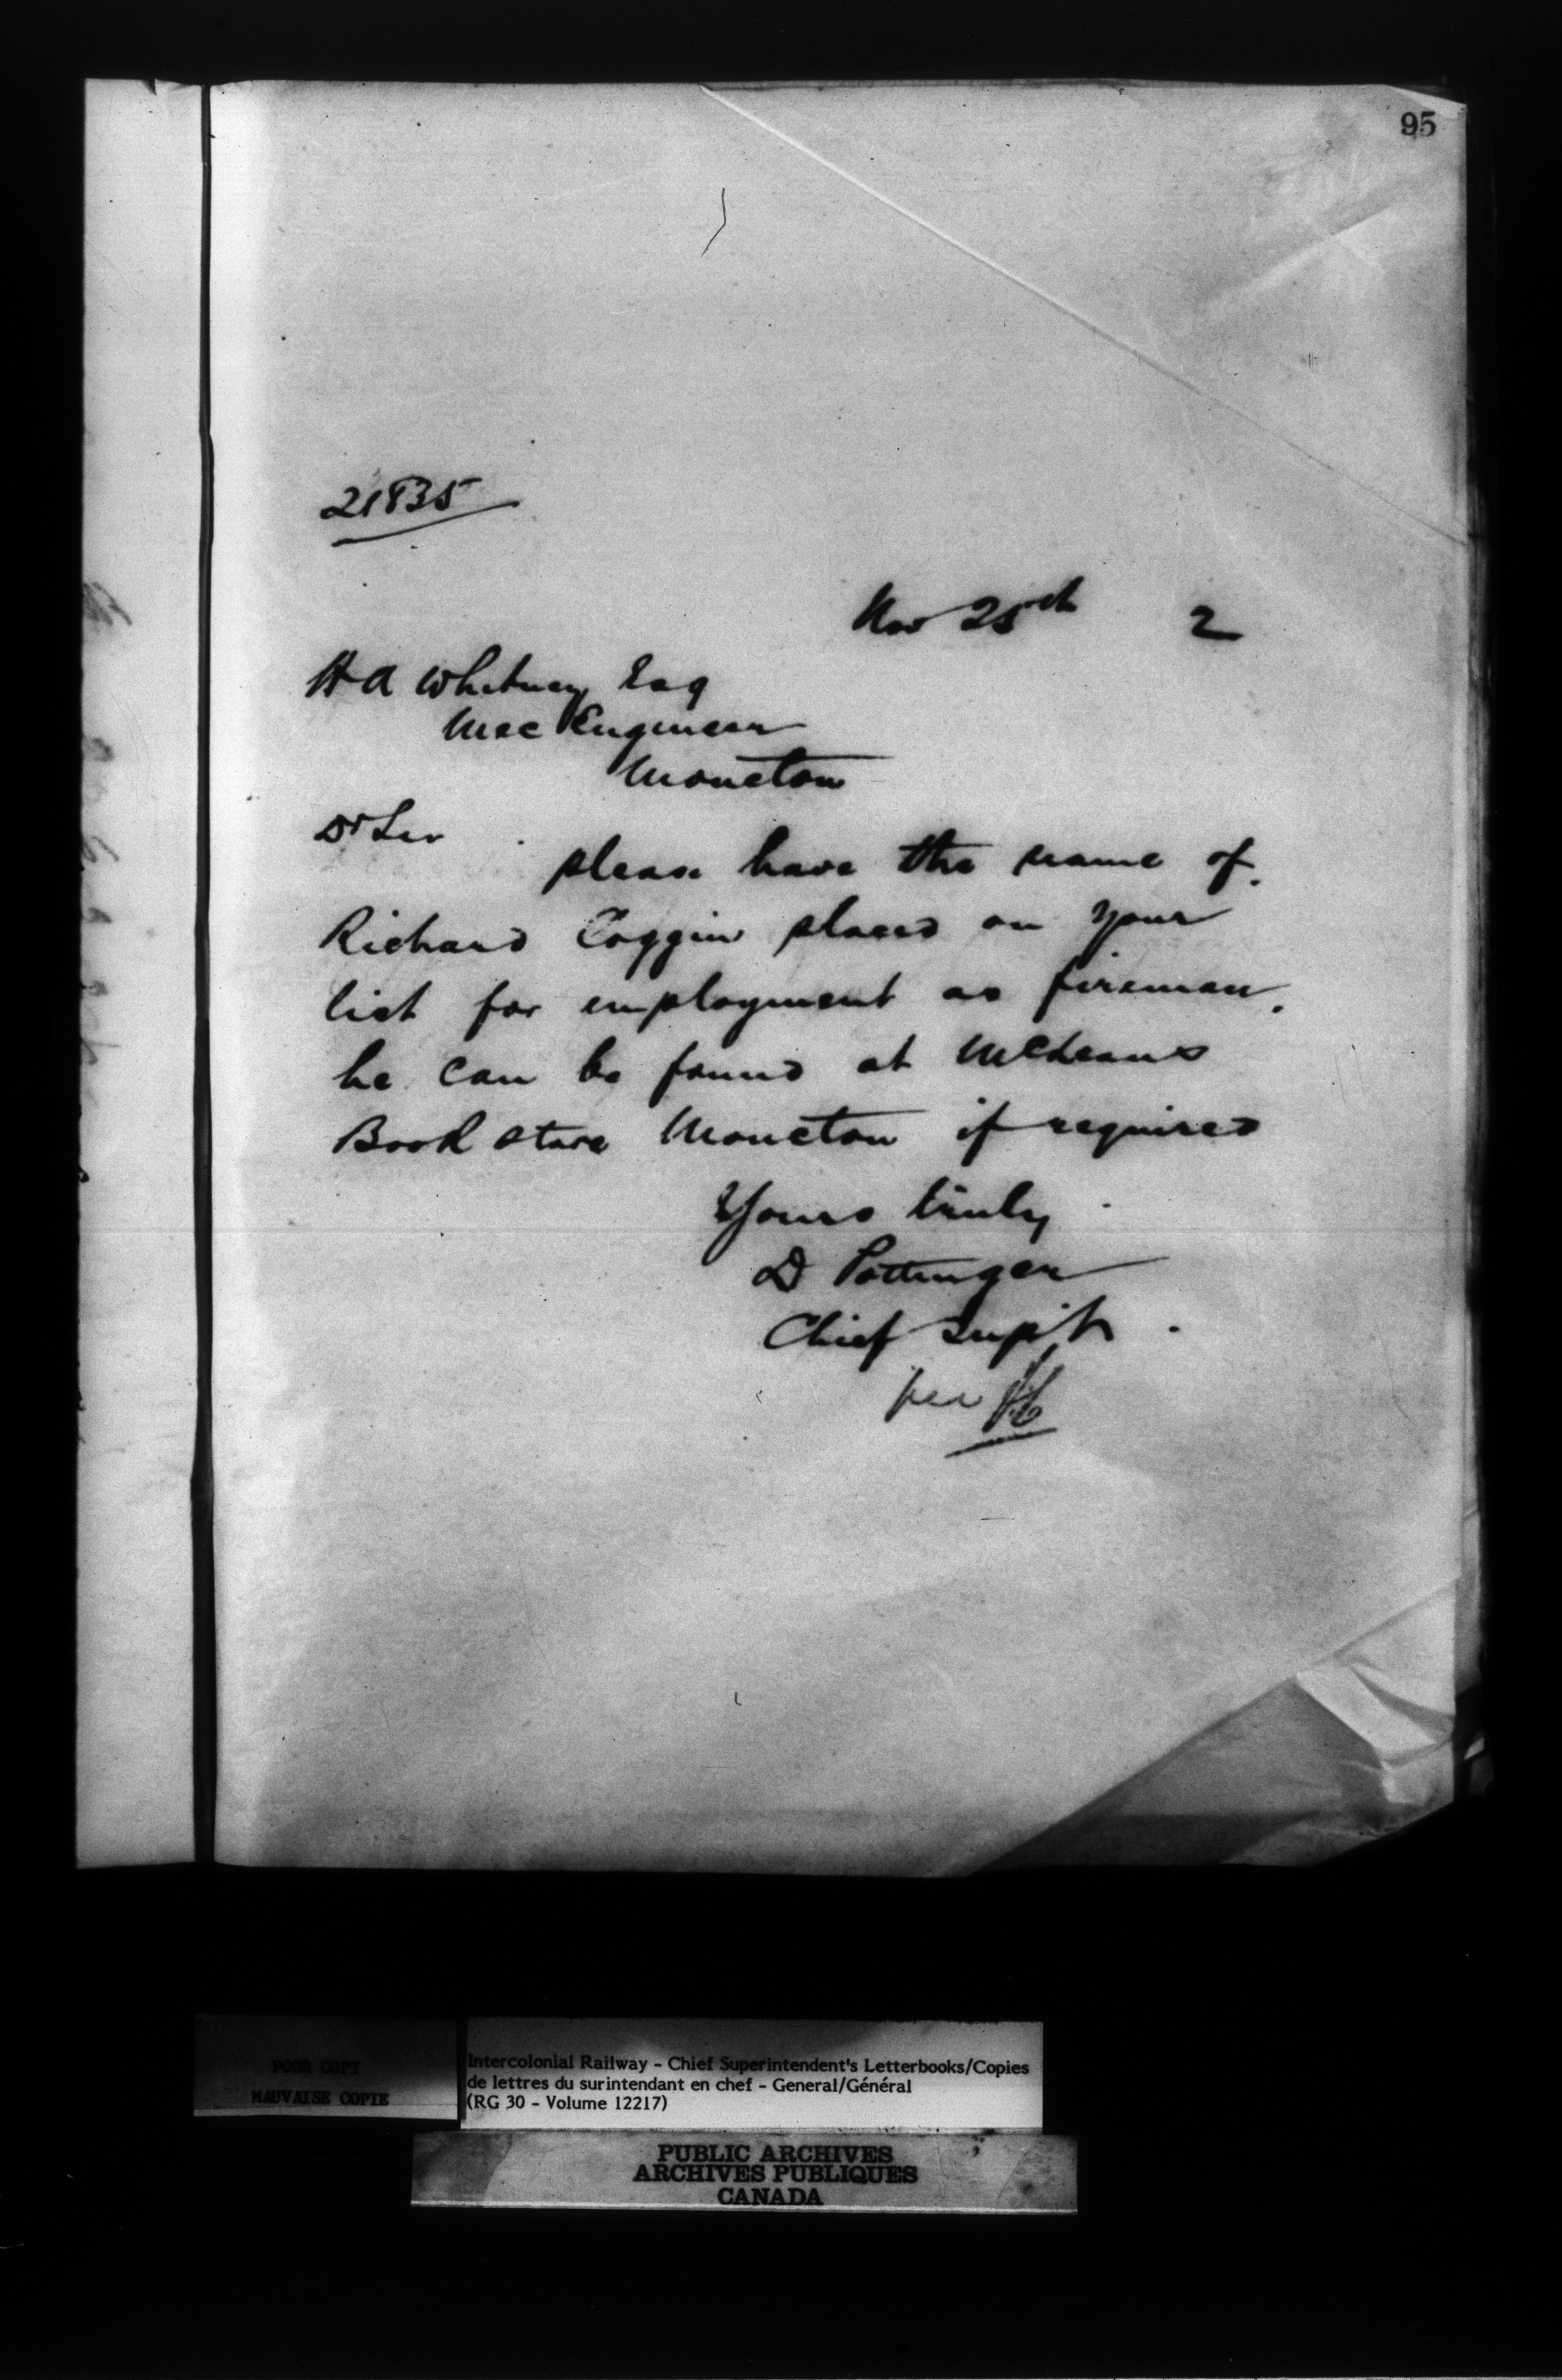 95
21835
Nov 25th 2
H A Whitney Esq
Mec Engineer
Moncton
Dr Sir
please have the name of
Richard Coggin placed on your
list for employment as fireman.
he can be found at McLeans
Book store Moncton if required
Yours truly
D Pottinger
Chief Supt
per
POOR COPY
MAUVAISE COPIE
Intercolonial Railway - Chief Superintendent's Letterbooks/Copies
de lettres du surintendant en chef - General/Général
(RG 30 - Volume 12217)
PUBLIC ARCHIVES
ARCHIVES PUBLIQUES
CANADA